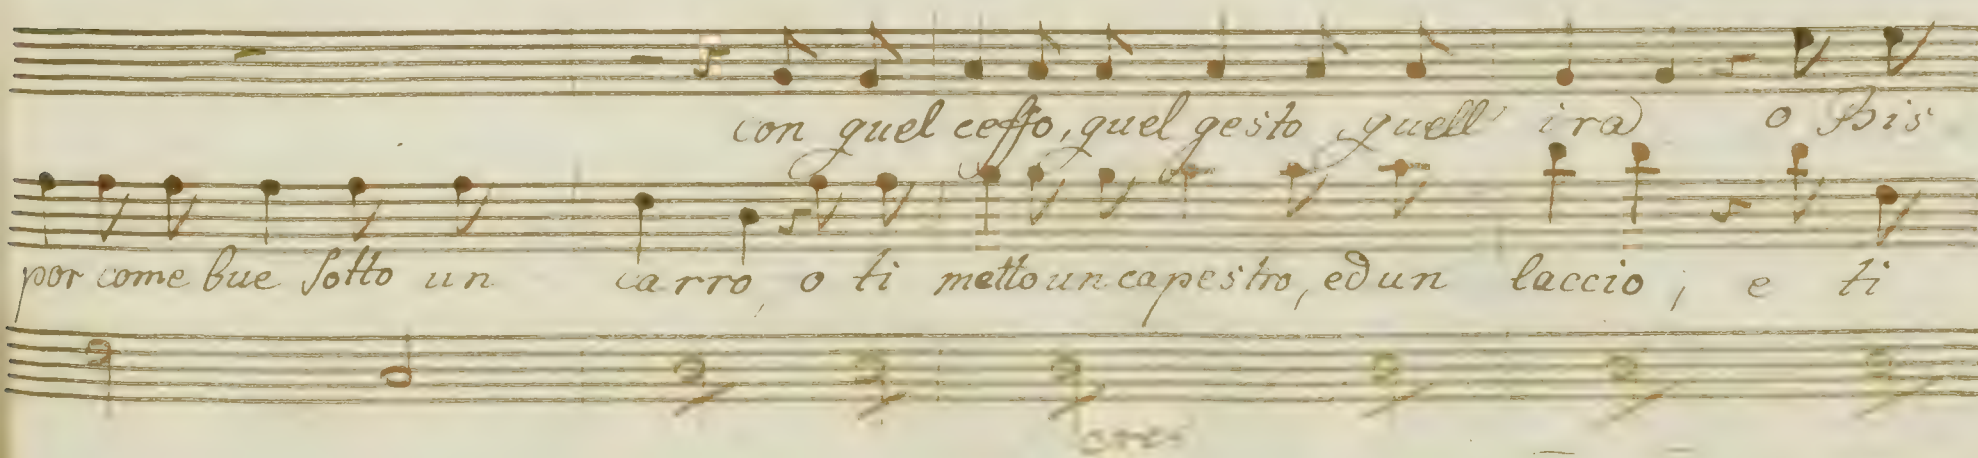 con quel ceffo, quel gesto quell' ira o Bis
por come bue sotto un carro, o ti metto un capestro, ed un laccio, e ti
cres